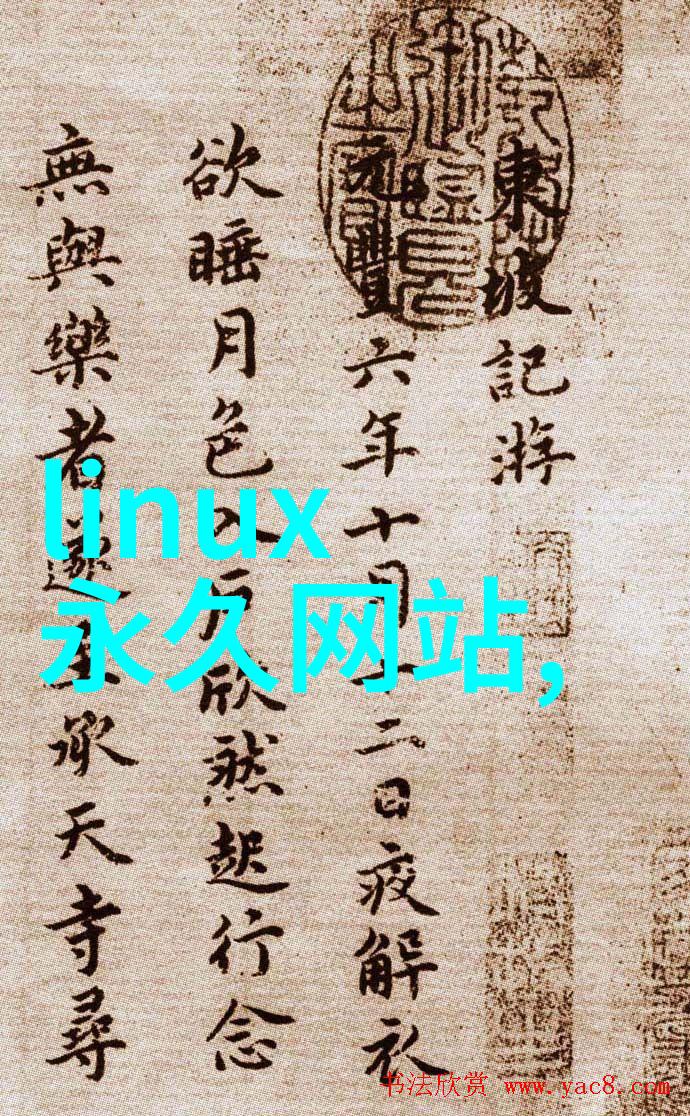 東坡記游
元豐六年十月十二日夜解衣
欲睡月色入户欣然起行念
無與樂者遂至承天寺尋
linux
永久网站,
书法欣赏 www.yac8.com